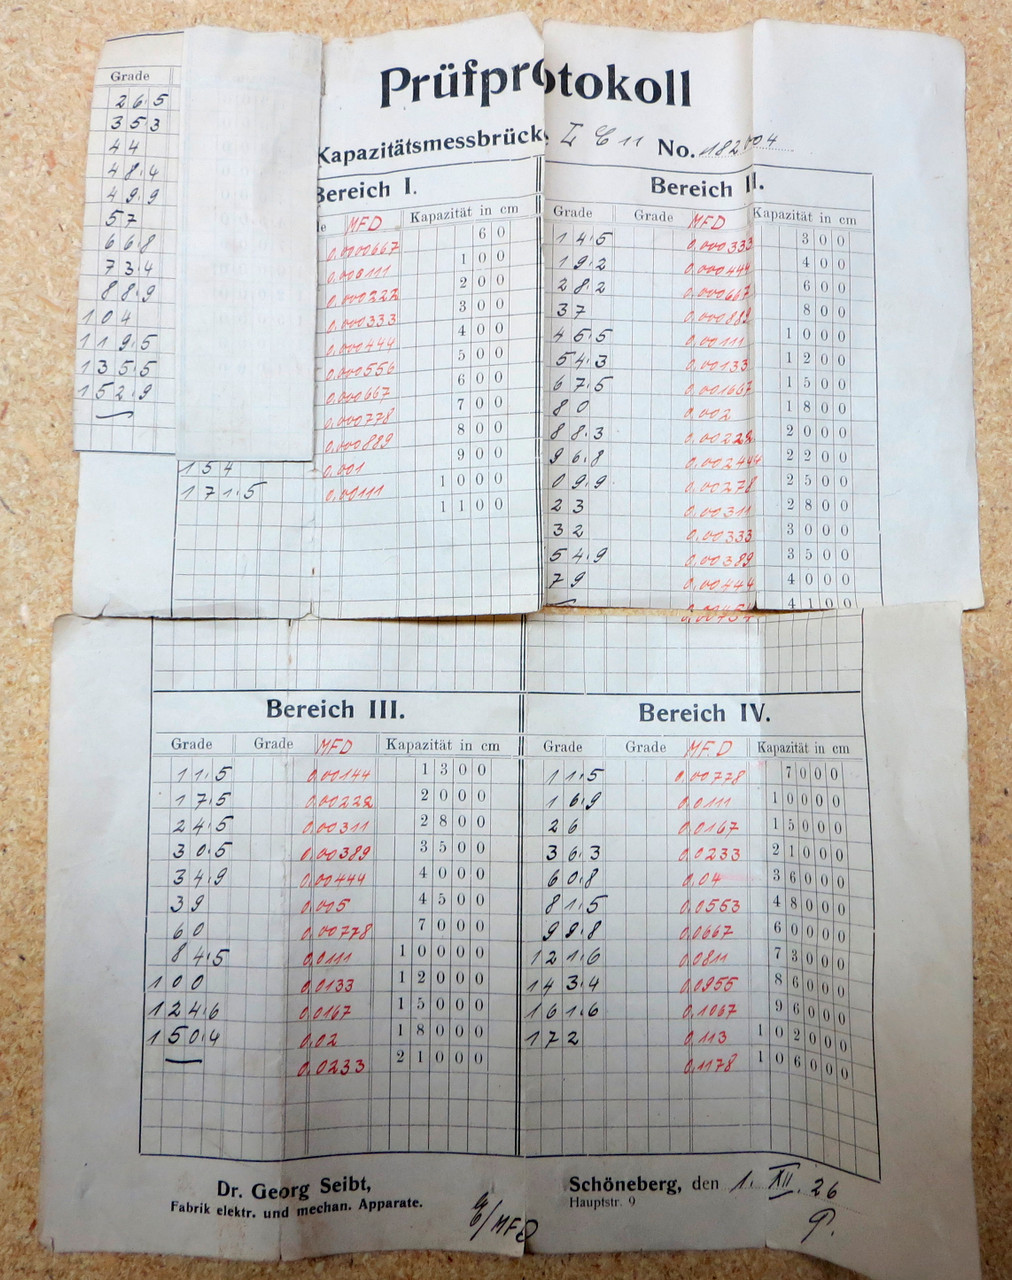 Prüfprotokoll
Kapazitätsmessbrücke 182004
No.
Grade
26,5
353
44
48,4
49,9
57
66,8
73,4
88,9
104
119,5
135,5
152,9
Bereich I.
MFD Kapazität in cm
0,0000667 60
0,000111 100
0,000222 200
0,000333 300
0,000444 400
0,000556 500
0,000667 600
0,000778 700
0,000889 800
154 0,001 900
171,5 0,00111 1000
1100
Bereich II.
Grade Grade MFD Kapazität in cm
14,5 0,000333 300
19,2 0,000444 400
28,2 0,000667 600
37 0,000889 800
45,5 0,00111 1000
54,3 0,00133 1200
67,5 0,001667 1500
80 0,002 1800
88,3 0,00222 2000
96,8 0,002444 2200
09,9 0,00278 2500
23 0,00311 2800
32 0,00333 3000
54,9 0,00389 3500
79 0,00444 4000
4100
Bereich III.
Grade Grade MFD Kapazität in cm
11,5 0,00144 1300
17,5 0,00222 2000
24,5 0,00311 2800
30,5 0,00389 3500
34,9 0,00444 4000
39 0,005 4500
60 0,00778 7000
84,5 0,0111 10000
100 0,0133 12000
124,6 0,0167 15000
150,4 0,02 18000
— 0,0233 21000
Bereich IV.
Grade Grade MFD Kapazität in cm
11,5 0,00778 7000
16,9 0,0111 10000
26 0,0167 15000
36,3 0,0233 21000
60,8 0,04 36000
81,5 0,0553 48000
99,8 0,0667 60000
121,6 0,0811 73000
143,4 0,0955 86000
161,6 0,1067 96000
172 0,113 102000
0,1178 106000
Dr. Georg Seibt,
Fabrik elektr. und mechan. Apparate.
Schöneberg, den 1. XII. 26
Hauptstr. 9